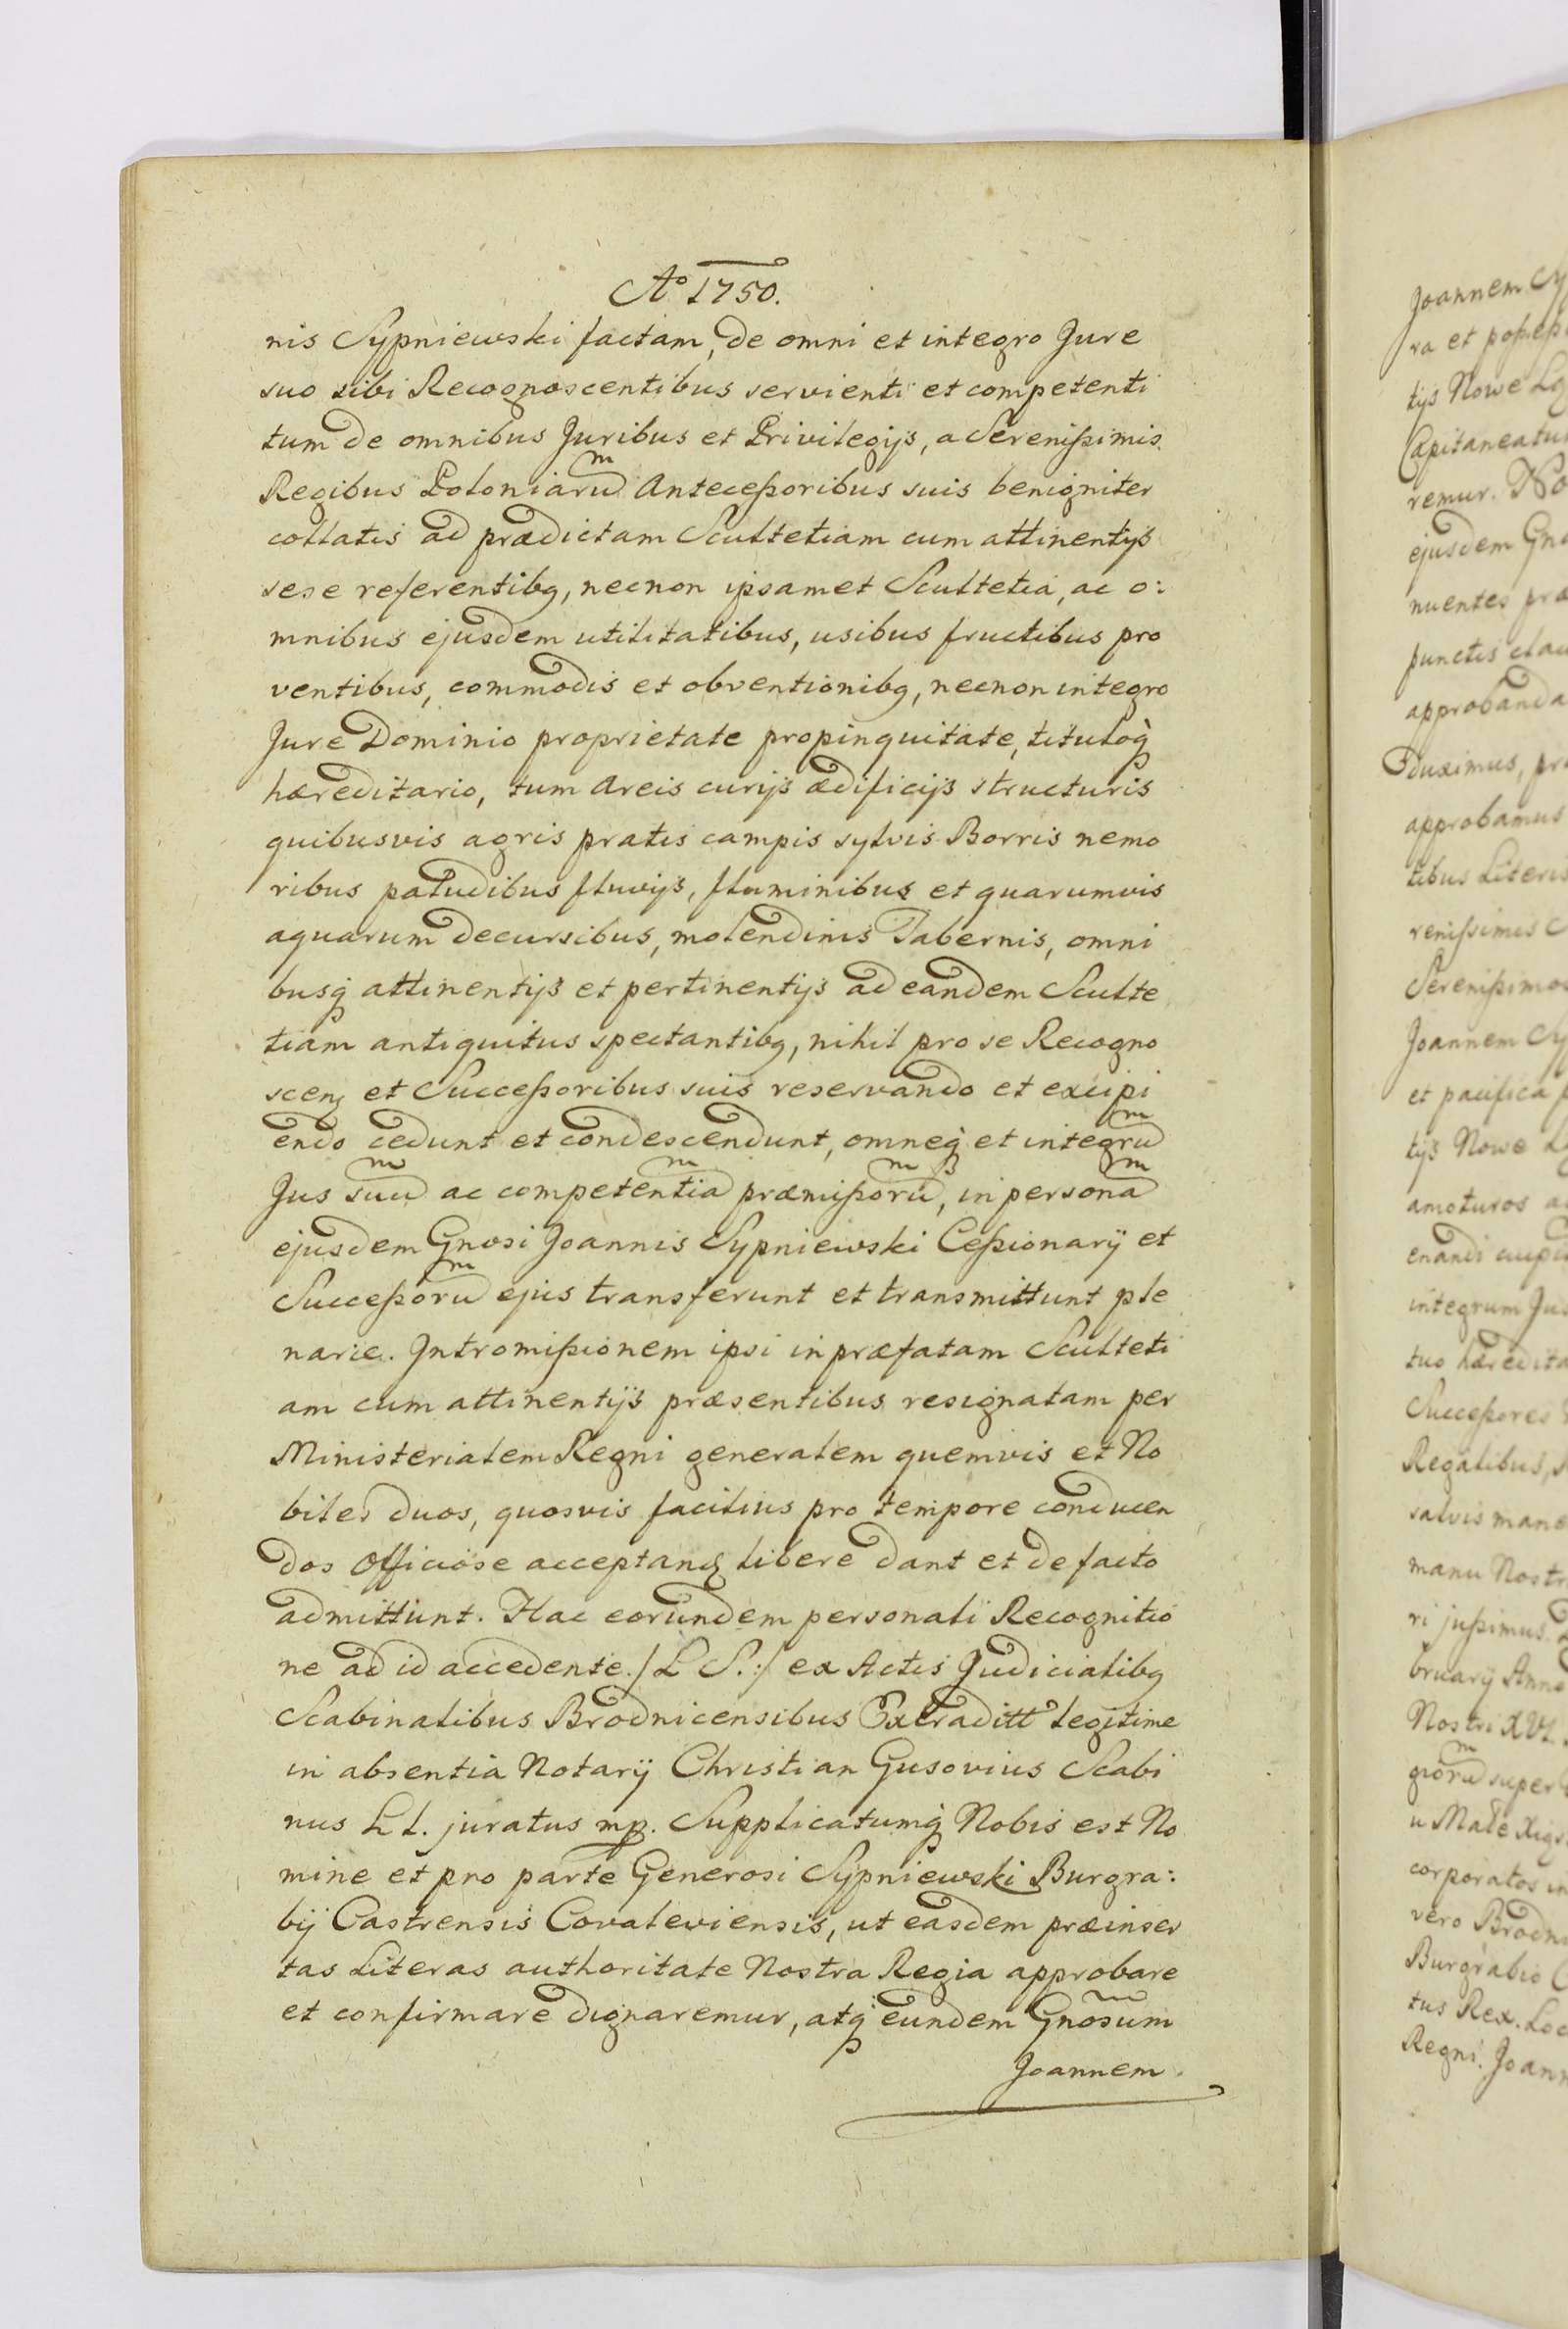 Aº 1750.
nis Sypniewski factam, de omni et integro Jure
suo sibi Recognoscentibus servienti et competenti
tum de omnibus Juribus et Privilegijs, a Serenißimis
Regibus Poloniarũ Anteceßoribus suis benigniter
collatis ad prædictam Scultetiam cum attinentijs
sese referentibq, necnon ipsamet Scultetia, ac o:
mnibus ejusdem utilitatibus, usibus fructibus pro
ventibus, commodis et obventionibq, necnon integro
Jure Dominio proprietate propinquitate, tituloq̀
hæreditario, tum Areis curijs ædificijs structuris
quibusvis agris pratis campis sylvis Borris nemo
ribus paludibus fluvijs, fluminibus et quarumvis
aquarum decursibus, molendinis Tabernis, omni
busq̀ attinentijs et pertinentijs ad eandem Sculte
tiam antiquitus spectantibq, nihil pro se Recogno
scenq et Succeßoribus suis reservando et excipi
endo cedunt et condescendunt, omneq̀ et integrũ
Jus suũ ac competentiã præmißorũ, in personã
ejusdem Gnosi Joannis Sypniewski Ceßionarij et
Succeßorũ ejus transferunt et transmittunt ple
narie. Intromißionem ipsi in præfatam Sculteti
am cum attinentijs præsentibus resignatam per
Ministerialem Regni generalem quemvis et No
biles duos, quosvis facilius pro tempore conducen
dos Officiose acceptanq libere dant et de facto
admittunt. Hac eorundem personali Recognitio
ne ad id accedente. / L S. :/ ex Actis Judicialibq
Scabinalibus Brodnicensibus Extraditt legitime
in absentia Notarij Christian Gusovius Scabi
nus Lt. juratus mp. Supplicatumq̀ Nobis est No
mine et pro parte Generosi Sypniewski Burgra:
bij Castrensis Covaleviensis, ut easdem præinser
tas Literas authoritate Nostra Regia approbare
et confirmare dignaremur, atq̀ eundem Gnosum
Joannem
Joannem Sy
ra et poßeß
tijs Nowe
Capitaneatu
remur. No
ejusdem Gno
nuentes præ
punctis clau
approbanda
duximus, pr
approbamus
tibus Literis
renißimis
Serenißimos
Joannem Sy
et pacifica p
tijs Nowe
amoturos a
enandi
integrum Jus
tuo hæredita
Succeßores
Regalibus,
salvis mane
manu Nostr
ri jußimus.
bruarij Anno
Nostri XVI.
super
u Male
corporatos in
vero Brodni
Burgrabio C
tus Rex. Loc
Regni. Joann